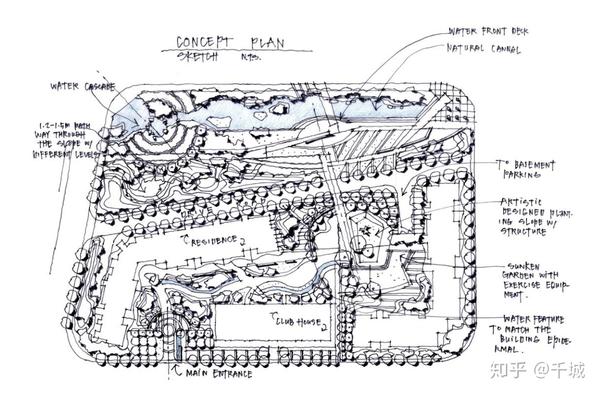 CONCEPT PLAN
SKETCH N.T.S.
WATER FRONT DECK
NATURAL CANNAL
WATER CASCADE
1.2-1.5M PATH
WAY THROUGH
THE SLOPE W/
DIFFERENT LEVELS
TO BASEMENT
PARKING
ARTISTIC
DESIGNED PLANT-
ING SLOPE W/
STRUCTURE
"RESIDENCE"
SUNKEN
GARDEN WITH
EXERCISE EQUIP-
MENT.
"CLUB HOUSE"
WATER FEATURE
TO MATCH THE
BUILDING EPIDE-
RMAL.
MAIN ENTRANCE
知乎 @千城